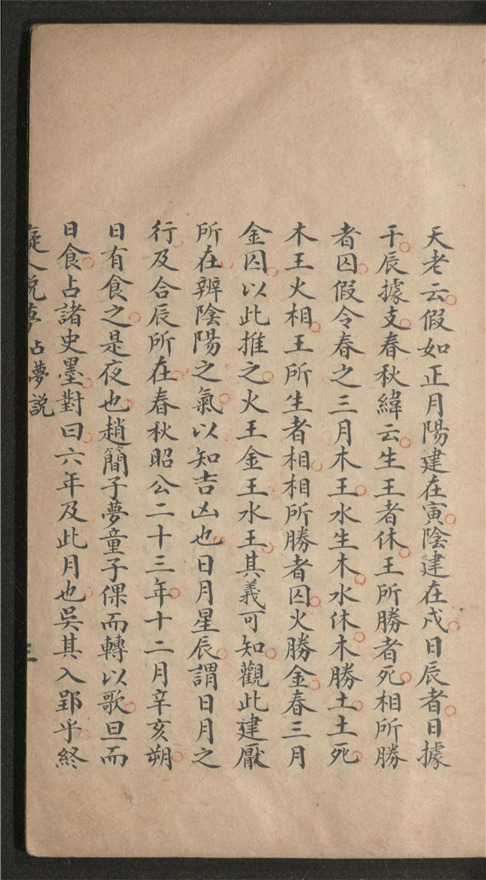 天老云假如正月陽建在寅陰建在戍日辰者日據
干辰據支春秋緯云生王者休王所勝者死相所勝
者囚假令春之三月木王水生木水休木勝土土死
木王火相王所生者相相所勝者囚火勝金春三月
金囚以此推之火王金王水王其義可知觀此建厭
所在辨陰陽之氣以知吉凶也日月星辰謂日月之
行及合辰所在春秋昭公二十三年十二月辛亥朔
日有食之是夜也趙簡子夢童子倮而轉以歌旦而
日食占諸史墨對曰六年及此月也吳其入郢乎終
人說夢占夢說
三